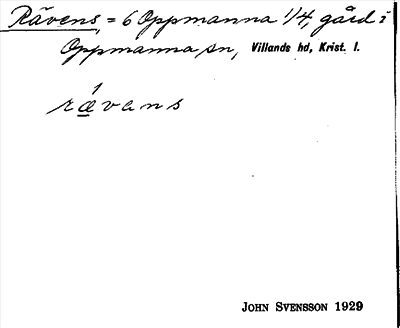 Rävens, = 6 Oppmanna 1/4, gård i
Oppmanna sn, Villands hd, Krist. l.
1
rävans
JOHN SVENSSON 1929